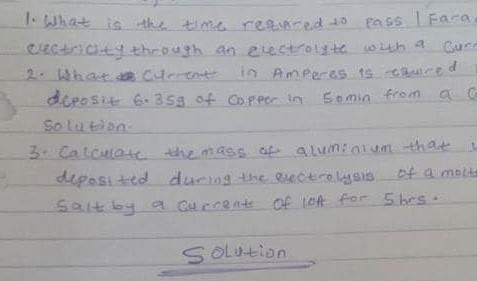 1. What is the time required to pass 1 Fara
electricity through an electrolyte with a Curr
2. What Current in Amperes is required
deposit 6.35g of Copper in 50min from a C
Solution.
3. Calculate the mass of aluminium that
deposited during the electrolysis of a molt
Salt by a Current of 10A for 5hrs.
Solution